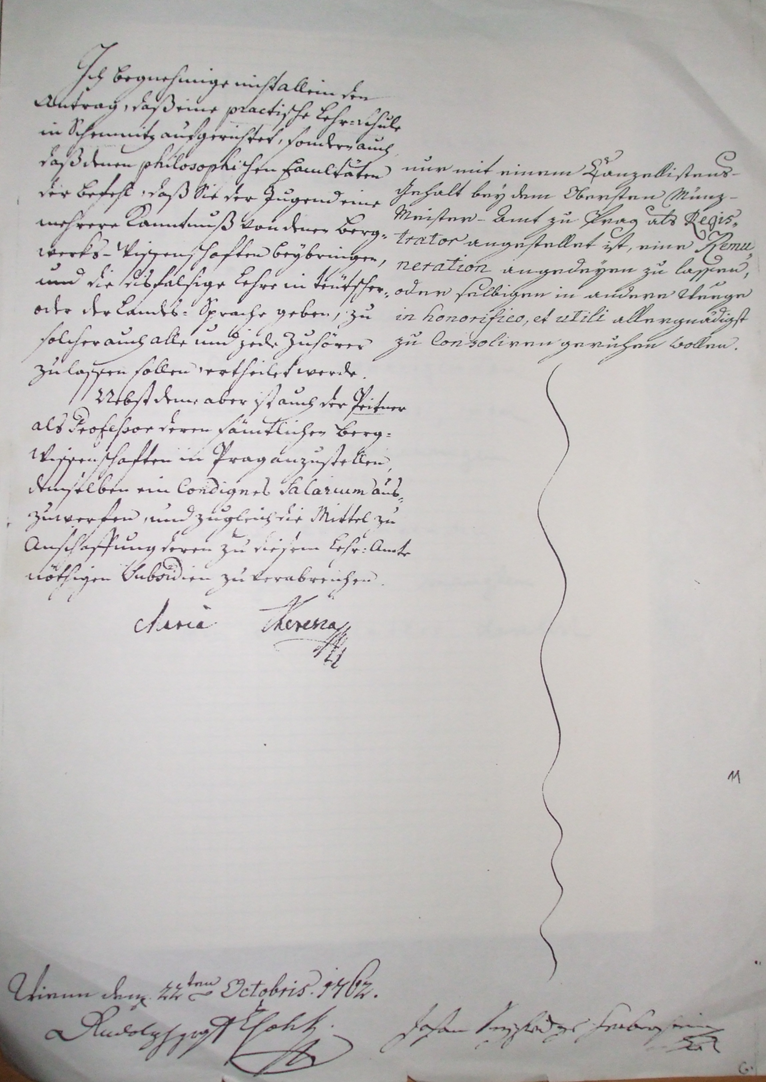 Ich begnehmige nicht allein den
Antrag, daß eine practische Lehr-schule
in Schemnitz aufgerichtet, sondern auch
daß denen philosophischen Facultäten
der Befehl, daß Sie der Jugend eine
mehrere Kanntnuß von denen Berg-
wercks-Wissenschaften beybringen,
und die disfalsige Lehre in teutscher
oder der Landes-Sprache geben, zu
solcher auch alle und jede Zuhörer
zu lassen sollen, ertheilet werde.
Nebst deme aber ist auch der Peitner
als Professor deren sämtlichen Berg-
Wissenschaften in Prag anzustellen,
demselben ein Condignes Salarium aus-
zuwerfen, und zugleich die Mittel zu
Anschaffung deren zu diesem Lehr-Amte
nöthigen Subsidien zu verabreichen.
Maria Theresia
nur mit einem Canzellistens-
Gehalt bey dem Obersten Münz-
Meister-Amt zu Prag als Regis-
trator angestellet ist, eine Remu
neration angedeyen zu lassen,
oder selbigen in andere Weege
in honorifico, et utili allergnädigst
zu Consoliren geruhen wollen.
Wienn den 22ten Octobris. 1762.
Rudolph Chotek
Johan Herberstein
11